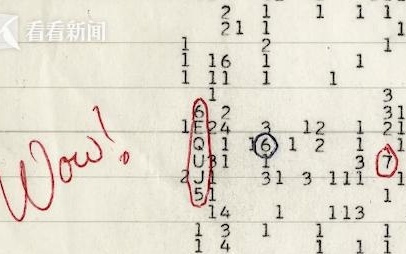 看看新闻
2 1 1 1 1
2 1 1 1
1 2 1
1 16 1 1
1 11 1 1
3
6 2 31
1 E 24 3 12 1 21
Q 1 1 6 1 2 1 1
Wow!
U 31 1 3 7
2 J 1 31 3 111 1
5 1
14 1 113
1 3 1 1 1
1 4 1 1 1